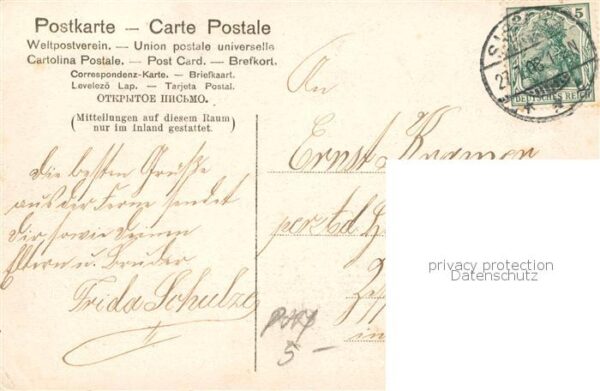 Postkarte — Carte Postale
Weltpostverein. — Union postale universelle
Cartolina Postale. — Post Card. — Brefkort.
Correspondenz-Karte. — Briefkaart.
Levelező Lap. — Tarjeta Postal.
ОТКРЫТОЕ ПИСЬМО.
(Mitteilungen auf diesem Raum
nur im Inland gestattet.)
Die besten Grüße
aus der Ferne sendet
Dir sowie Deinen
Eltern u. Bruder
Frida Schulze
5
DEUTSCHES REICH
An
Ernst Kramer
per
in
privacy protection
Datenschutz
5 —